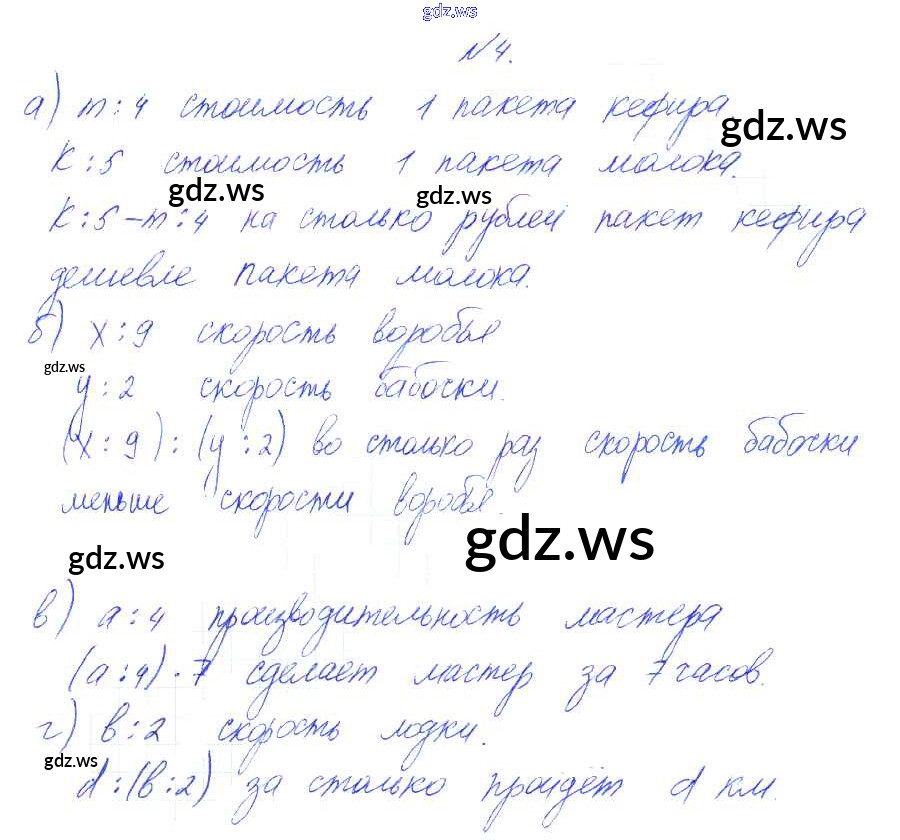 gdz.ws
№4.
а) m : 4 стоимость 1 пакета кефира
gdz.ws
К : 5 стоимость 1 пакета молока.
gdz.ws gdz.ws
К : 5 – m : 4 на столько рублей пакет кефира
дешевле пакета молока.
б) х : 9 скорость воробья
gdz.ws
у : 2 скорость бабочки.
(х : 9) : (у : 2) во столько раз скорость бабочки
меньше скорости воробья.
gdz.ws
gdz.ws
в) а : 4 производительность мастера
(а : 4) · 7 сделает мастер за 7 часов.
г) в : 2 скорость лодки.
gdz.ws
d : (в : 2) за столько пройдёт d км.